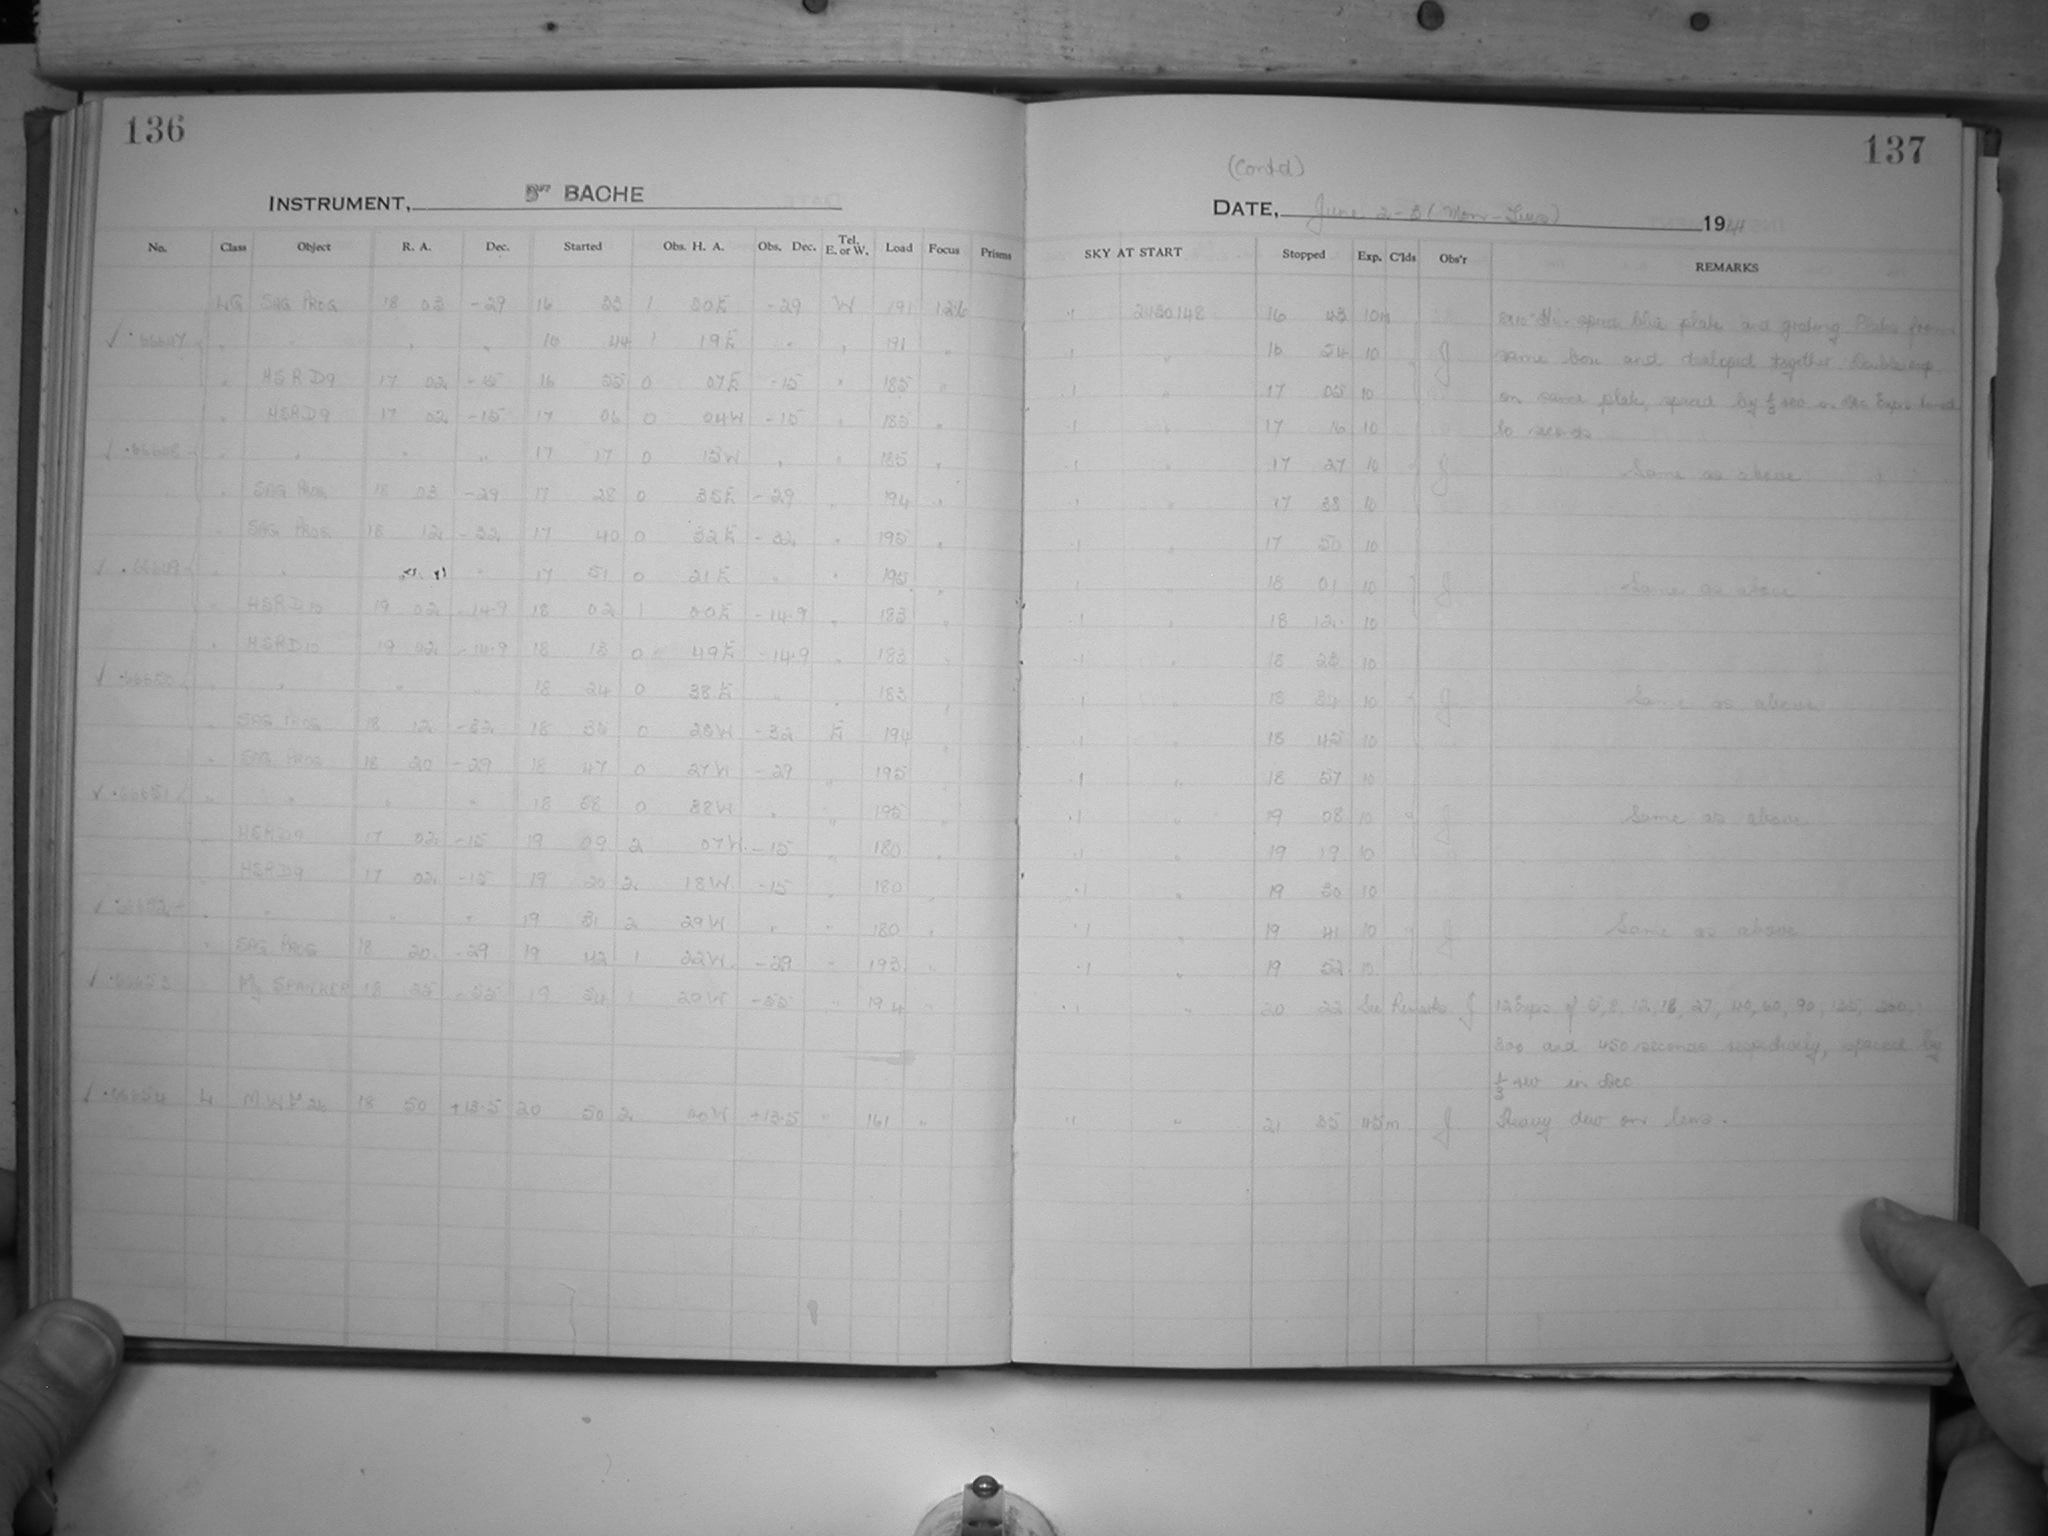 136
INSTRUMENT, 8" BACHE
No. Class Object R. A. Dec. Started Obs. H. A. Obs. Dec. Tel. E. or W. Load Focus Prisms
LG SAG PROG 18 03 -29 16 33 1 30E -29 W 191 12.6
✓ 66647 " " " " 16 44 1 19E " " 191 "
" HSRD9 17 02 -15 16 55 0 07E -15 " 185 "
" HSRD9 17 02 -15 17 06 0 04W -15 " 185 "
✓ 66648 " " " " 17 17 0 15W " " 185 "
" SAG PROG 18 03 -29 17 28 0 35E -29 " 194 "
" SAG PROG 18 12 -32 17 40 0 32E -32 " 195 "
✓ 66649 " " " " 17 51 0 21E " " 195 "
" HSRD10 19 02 -14.9 18 02 1 00E -14.9 " 183 "
" HSRD10 19 02 -14.9 18 13 0 49E -14.9 " 183 "
✓ 66650 " " " " 18 24 0 38E " " 183 "
" SAG PROG 18 12 -32 18 35 0 23W -32 E 194 "
" SAG PROG 18 20 -29 18 47 0 27W -29 " 195 "
✓ 66651 " " " " 18 58 0 38W " " 195 "
" HSRD9 17 02 -15 19 09 2 07W -15 " 180 "
" HSRD9 17 02 -15 19 20 2 18W -15 " 180 "
✓ 66652 " " " " 19 31 2 29W " " 180 "
" SAG PROG 18 20 -29 19 42 1 22W -29 " 193 "
✓ 66653 19 54 1 29W -55 " 194 "
✓ 66654 L M.W.F 26 18 50 +13.5 20 50 2 00W +13.5 " 161 "
137
(Contd)
DATE, June 2-3 (Mon-Tues) 1941
SKY AT START Stopped Exp. C'lds Obs'r REMARKS
.1 2430148 16 43 10m blue plate and grating. Plates from
.1 " 16 54 10 J same box and developed together. Double exp
.1 " 17 05 10 on same plate, spaced by 1/3 rev in dec
.1 " 17 16 10 seconds
.1 " 17 27 10 J Same as above
.1 " 17 38 10
.1 " 17 50 10
.1 " 18 01 10 J Same as above
.1 " 18 12 10
.1 " 18 23 10
.1 " 18 34 10 J Same as above
.1 " 18 45 10
.1 " 18 57 10
.1 " 19 08 10 J Same as above
.1 " 19 19 10
.1 " 19 30 10
.1 " 19 41 10 J Same as above
.1 " 19 52 10
.1 " 20 22 See Remarks J 12 Exps of 5, 8, 12, 18, 27, 40, 60, 90, 135, 200,
300 and 450 seconds respectively, spaced by
1/3 rev in dec
" " 21 35 45m J Heavy dew on lens.